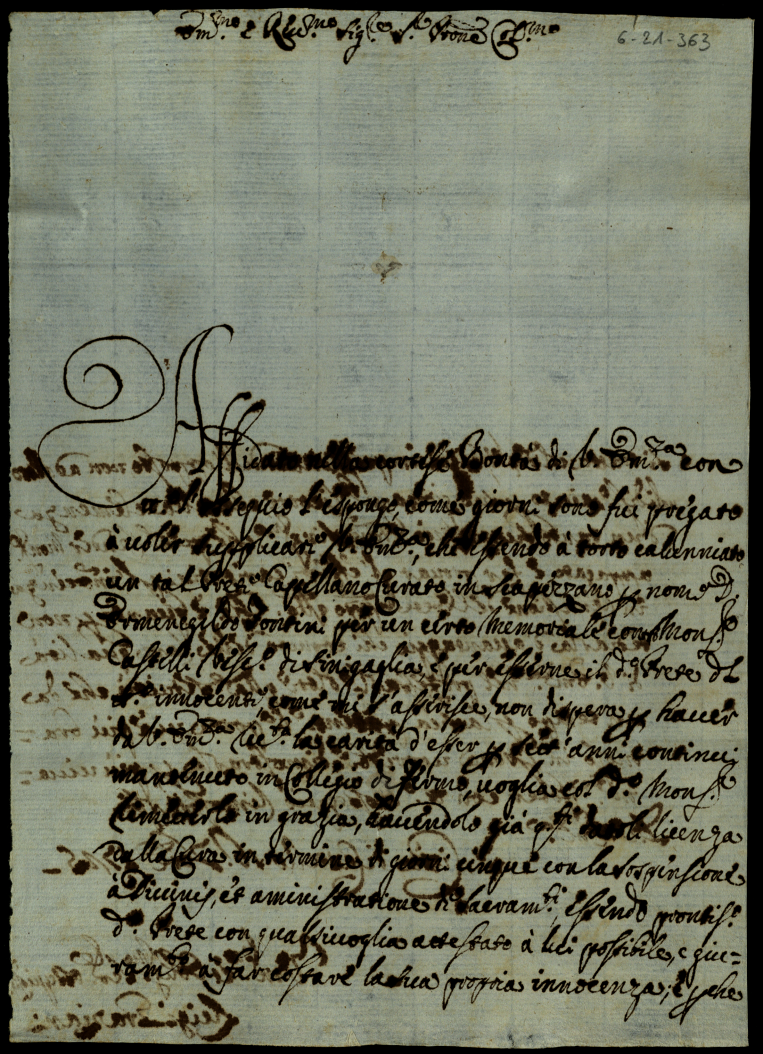 Em.mo e Rev.mo Sig.re S.r Prone Col.mo
6-21-363
Affidato nella cortese Bontà di V. Em.za con
ossequio l'espongo, come giorni sono fui pregato
à voler supplicare V. Em.za, che essendo à torto calunniato
un tal Prete Capellano Curato in Scapezzano p nome D.
Ermenegildo Pontini per un certo Memoriale con Mons.r
Castelli Vesc.o di Sinigaglia, e per esserne il d.o Prete
innocente come mi asserisce, non dispera p haver
da V. Em.za la carità d'esser p sett'anni continui
mantenuto in Collegio di Fermo, voglia col d.o Mons.r
rimetterlo in grazia, havendolo già licenza
dalla Cura in termine di giorni cinque con la sospensione
à Divinis, et aministratione de sacram.ti, essendo prontis.o
d.o Prete con qualsivoglia attestato à lui possibile, e giu=
ram.to à far costare la sua propria innocenza; e p che